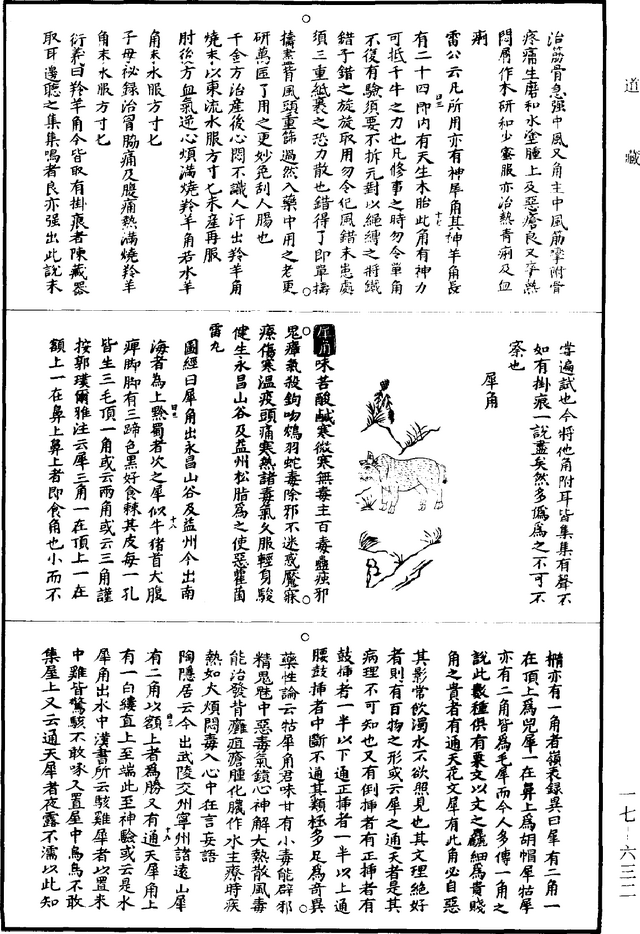 道藏
治筋骨急强中風又角主中風筋攣附骨
疼痛生磨和水塗腫上及惡瘡良又卒熱
悶屑作末研和少蜜服亦治熱毒痢及血
痢
雷公云凡所用亦有神犀角其神羊角長
有二十四節内有天生木胎此角有神力
可抵千牛之力也凡修事之時勿令單角
不復有驗須要不拆元對以繩縛之將鐵
錯子錯之旋旋取用勿令犯風錯末盡處
須三重紙裹之恐力散也錯得了即單擣
擣煞背風頭重篩過然入藥中用之老更
研萬匝了用之更妙免刮人腸也
千金方治產後心悶不識人汗出羚羊角
燒末以東流水服方寸匕未差再服
肘後方血氣逆心煩滿燒羚羊角若水羊
角末水服方寸匕
子母祕録治胷脇痛及腹痛熱滿燒羚羊
角末水服方寸匕
衍義曰羚羊角今皆取有掛痕者陳藏器
取耳邊聽之集集鳴者良亦强出此説未
嘗遍試也今將他角附耳皆集集有聲不
如有掛痕一説盡矣然多僞爲之不可不
察也
犀角
犀角味苦酸鹹寒微寒無毒主百毒蠱疰邪
鬼瘴氣殺鉤吻鴆羽蛇毒除邪不迷惑魘寐
療傷寒溫疫頭痛寒熱諸毒氣久服輕身駿
健生永昌山谷及益州松脂爲之使惡雚菌
雷丸
圖經曰犀角出永昌山谷及益州今出南
海者為上黔蜀者次之犀似牛猪首大腹
痺脚脚有三蹄色黑好食棘其皮每一孔
皆生三毛頂一角或云兩角或云三角謹
按郭璞爾雅注云犀三角一在頂上一在
額上一在鼻上鼻上者即食角也小而不
橢亦有一角者嶺表録異曰犀有二角一
在頂上爲兕犀一在鼻上爲胡帽犀牯犀
亦有二角皆爲毛犀而今人多傳一角之
説此數種俱有粟文以文之麤細爲貴賤
角之貴者有通天花文犀有此角必自惡
其影常飲濁水不欲照見也其文理絶好
者則有百物之形或云犀之通天者是其
病理不可知也又有倒挿者有正挿者有
腰鼓挿者一半以下通正挿者一半以上通
腰鼓挿者中斷不通其類極多足爲奇異
藥性論云牯犀角君味甘有小毒能辟邪
精鬼魅中惡毒氣鎮心神解大熱散風毒
能治發背癰疽瘡腫化膿作水主療時疾
熱如火煩悶毒入心中狂言妄語
陶隱居云今出武陵交州寧州諸遠山犀
有二角以額上者為勝又有通天犀角上
有一白縷直上至端此至神驗或云是水
犀角出水中漢書所云駭雞犀者以置米
中雞皆驚駭不敢啄又置屋中烏鳥不敢
集屋上又云通天犀者夜露不濡以此知
一七—六三二